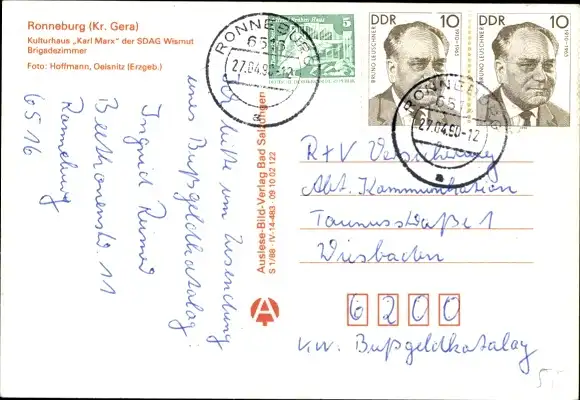 Ronneburg (Kr. Gera)
Kulturhaus „Karl Marx" der SDAG Wismut
Brigadezimmer
Foto: Hoffmann, Oelsnitz (Erzgeb.)
RONNEBURG
6516
27.04.90-12
a
5
DDR 10
BRUNO LEUSCHNER 1910-1965
DDR 10
BRUNO LEUSCHNER 1910-1965
RONNEBURG
651
27.04.90-12
a
Ich bitte um Zusendung
eines Bußgeldkatalog:
Ingrid
Beethovenstr. 11
Ronneburg
6516
Auslese-Bild-Verlag Bad Salzungen
S 1/88 · IV-14-483 · 09 10 02 122
A
R+V Versicherung
Abt. Kommunikation
Taunusstraße 1
Wiesbaden
6200
KW. Bußgeldkatalog